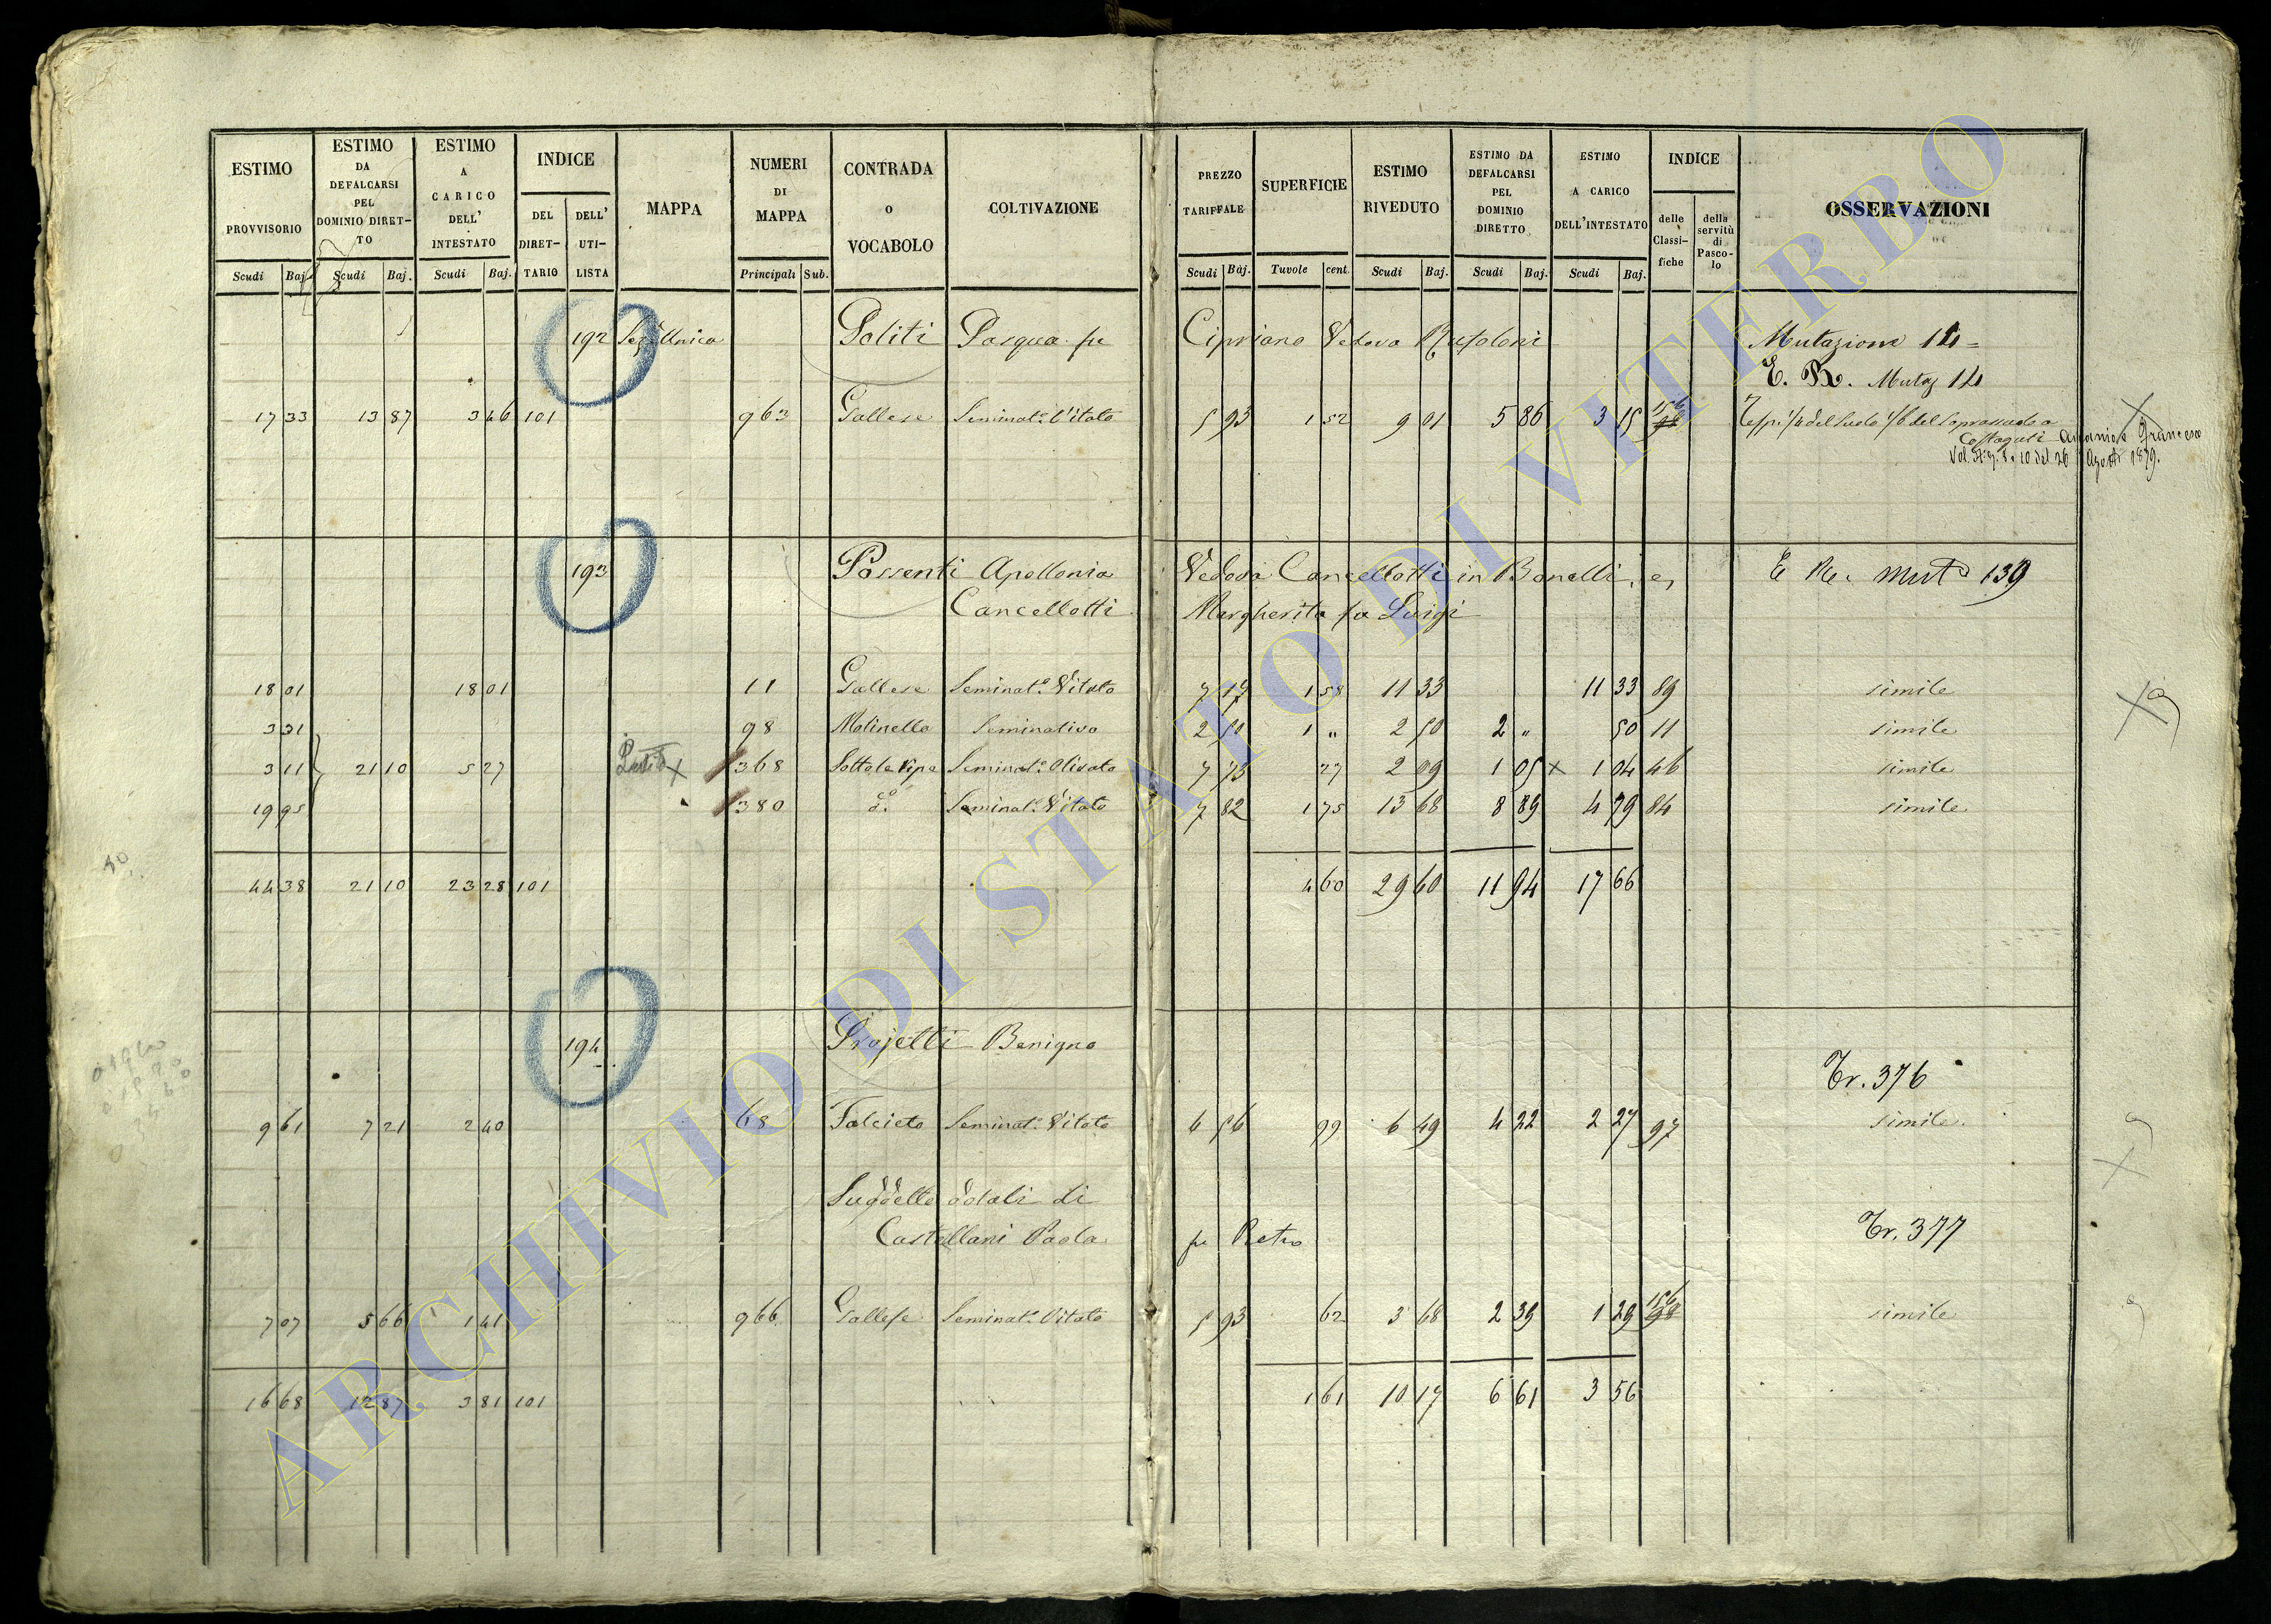 ESTIMO PROVVISORIO Scudi Baj.
ESTIMO DA DEFALCARSI PEL DOMINIO DIRETTO Scudi Baj.
ESTIMO A CARICO DELL' INTESTATO Scudi Baj.
INDICE DEL DIRETTARIO DELL' UTILISTA
MAPPA
NUMERI DI MAPPA Principali Sub.
CONTRADA O VOCABOLO
COLTIVAZIONE
PREZZO TARIFFALE Scudi Baj.
SUPERFICIE Tavole cent.
ESTIMO RIVEDUTO Scudi Baj.
ESTIMO DA DEFALCARSI PEL DOMINIO DIRETTO Scudi Baj.
ESTIMO A CARICO DELL'INTESTATO Scudi Baj.
INDICE delle Classifiche della servitù di Pascolo
OSSERVAZIONI
192 Sez. Unica Politi Pasqua fu Cipriano Vedova Mutazione 14
E. R. Mutaz 14
17 33 13 87 3 46 101 963 Gallese Seminat.o Vitato 5 93 1 52 9 01 5 86 3 15 156
193 Possenti Apollonia Vedova Cancellotti in Bonelli, e, E Re. Mut 139
Cancellotti Margherita fu Luigi
18 01 18 01 11 Gallese Seminat.o Vitato 7 17 1 58 11 33 11 33 89 simile
3 31 98 Molinella Seminativo 2 50 1 " 2 50 2 " 50 11 simile
3 11 21 10 5 27 368 Sotto le Ripe Seminat.o Olivato 7 73 27 2 09 1 05 1 04 46 simile
19 95 380 d.o Seminat.o Vitato 7 82 1 75 13 68 8 89 4 79 84 simile
44 38 21 10 23 28 101 4 60 29 60 11 94 17 66
194 Projetti Benigno
Tr. 376
9 61 7 21 2 40 68 Falcieto Seminat.o Vitato 6 56 99 6 49 4 22 2 27 97 simile
Suddette dotali di
Castellani Paola fu Pietro Tr. 377
7 07 5 66 1 41 966 Gallese Seminat.o Vitato 5 93 62 3 68 2 39 1 29 156 98 simile
16 68 12 87 3 81 101 1 61 10 17 6 61 3 56
ARCHIVIO DI STATO DI VITERBO